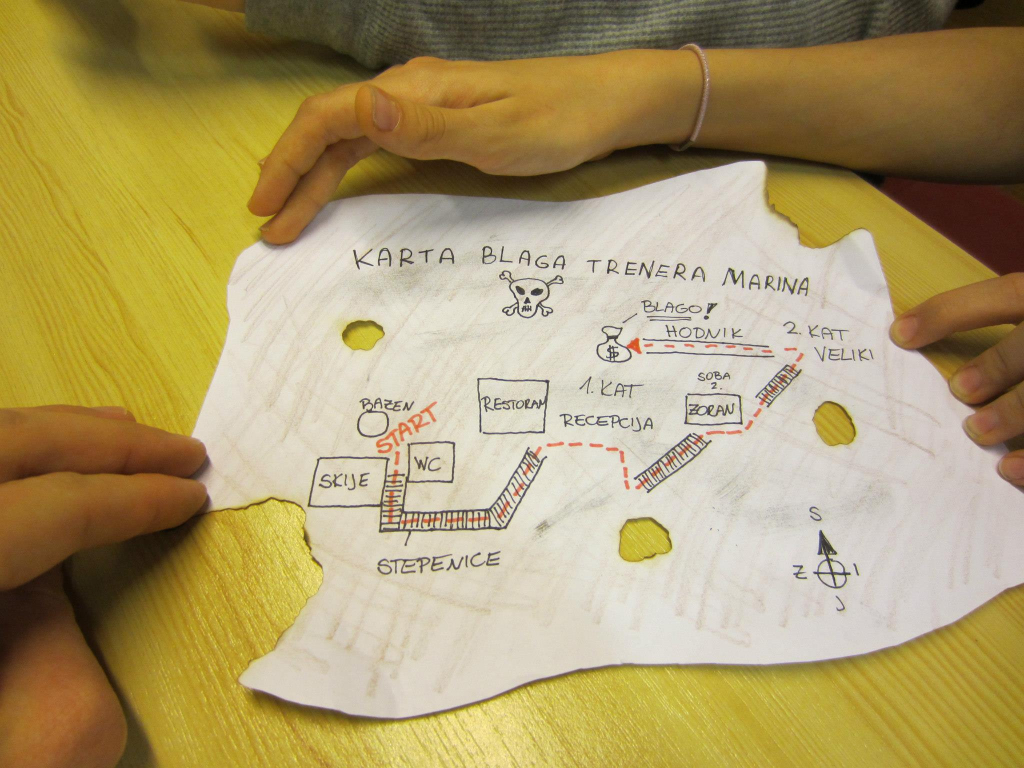 KARTA BLAGA TRENERA MARINA
BLAGO!
$
HODNIK
2. KAT
VELIKI
BAZEN
START
RESTORAN
1. KAT
RECEPCIJA
SOBA
2.
ZORAN
SKIJE
WC
STEPENICE
S
Z I
J